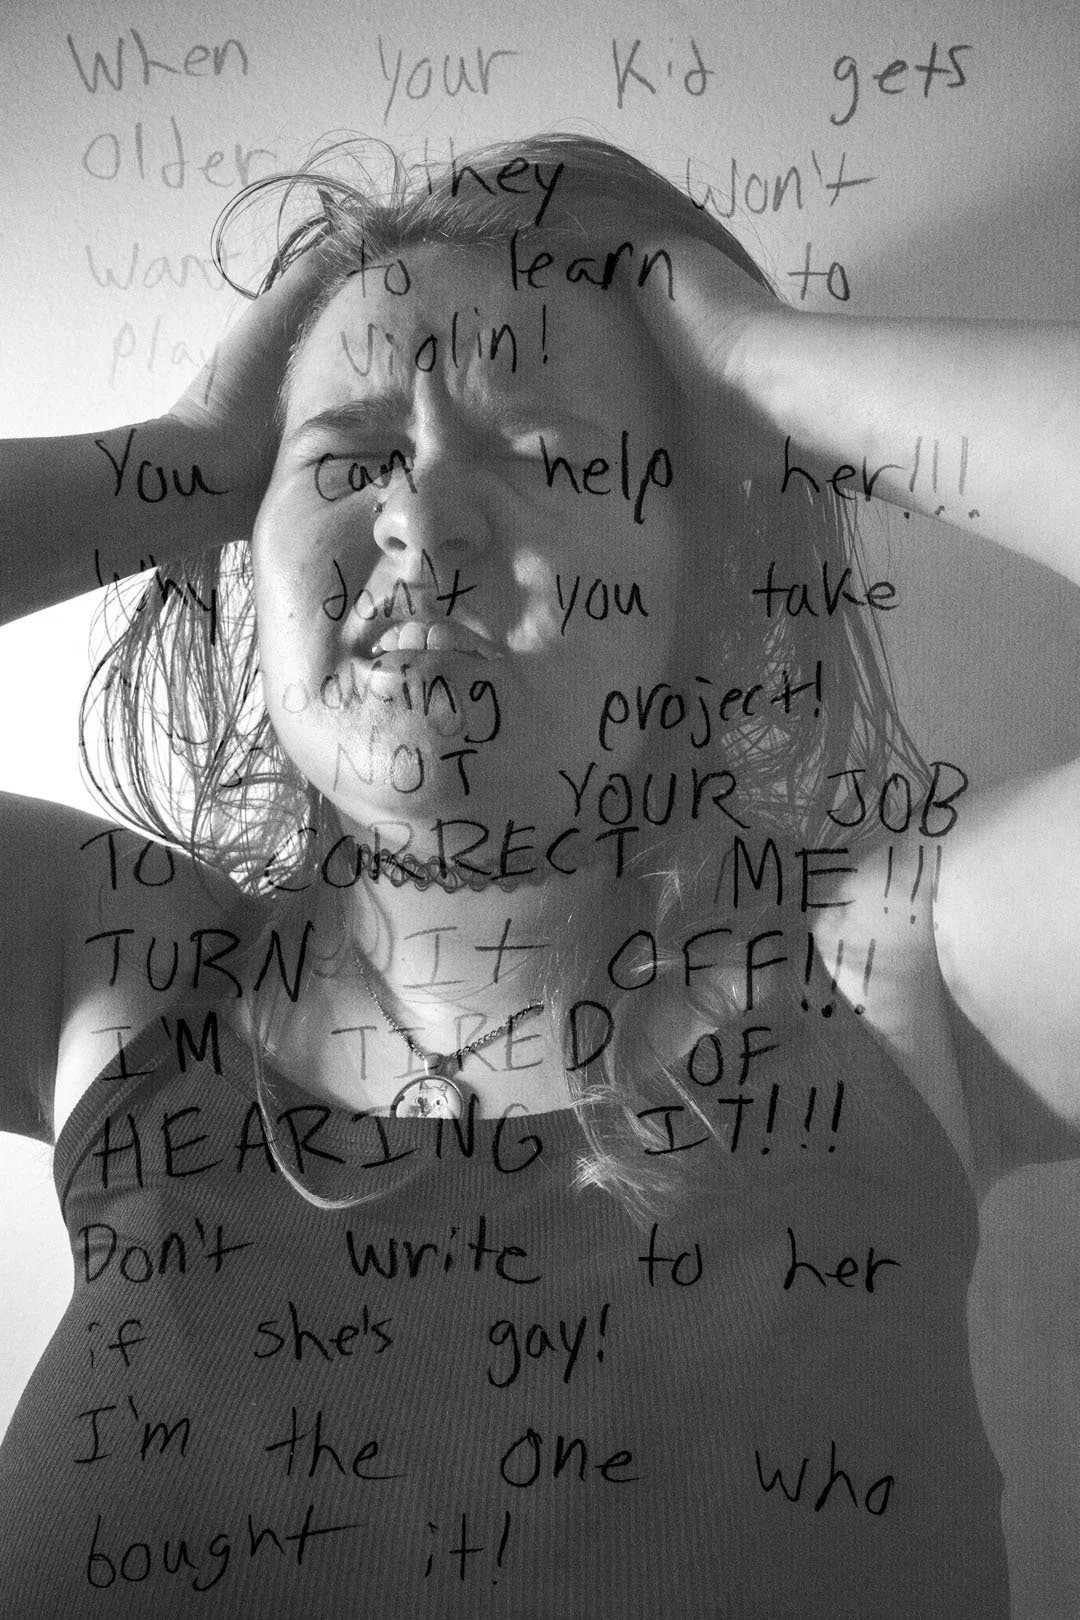 When your Kid gets
Older they won't
want to learn to
play violin!
You can help her!!!
Why don't you take
project!
NOT YOUR JOB
TO CORRECT ME!!!
TURN It OFF!!!
I'M TIRED OF
HEARING IT!!!
Don't write to her
if she's gay!
I'm the one who
bought it!